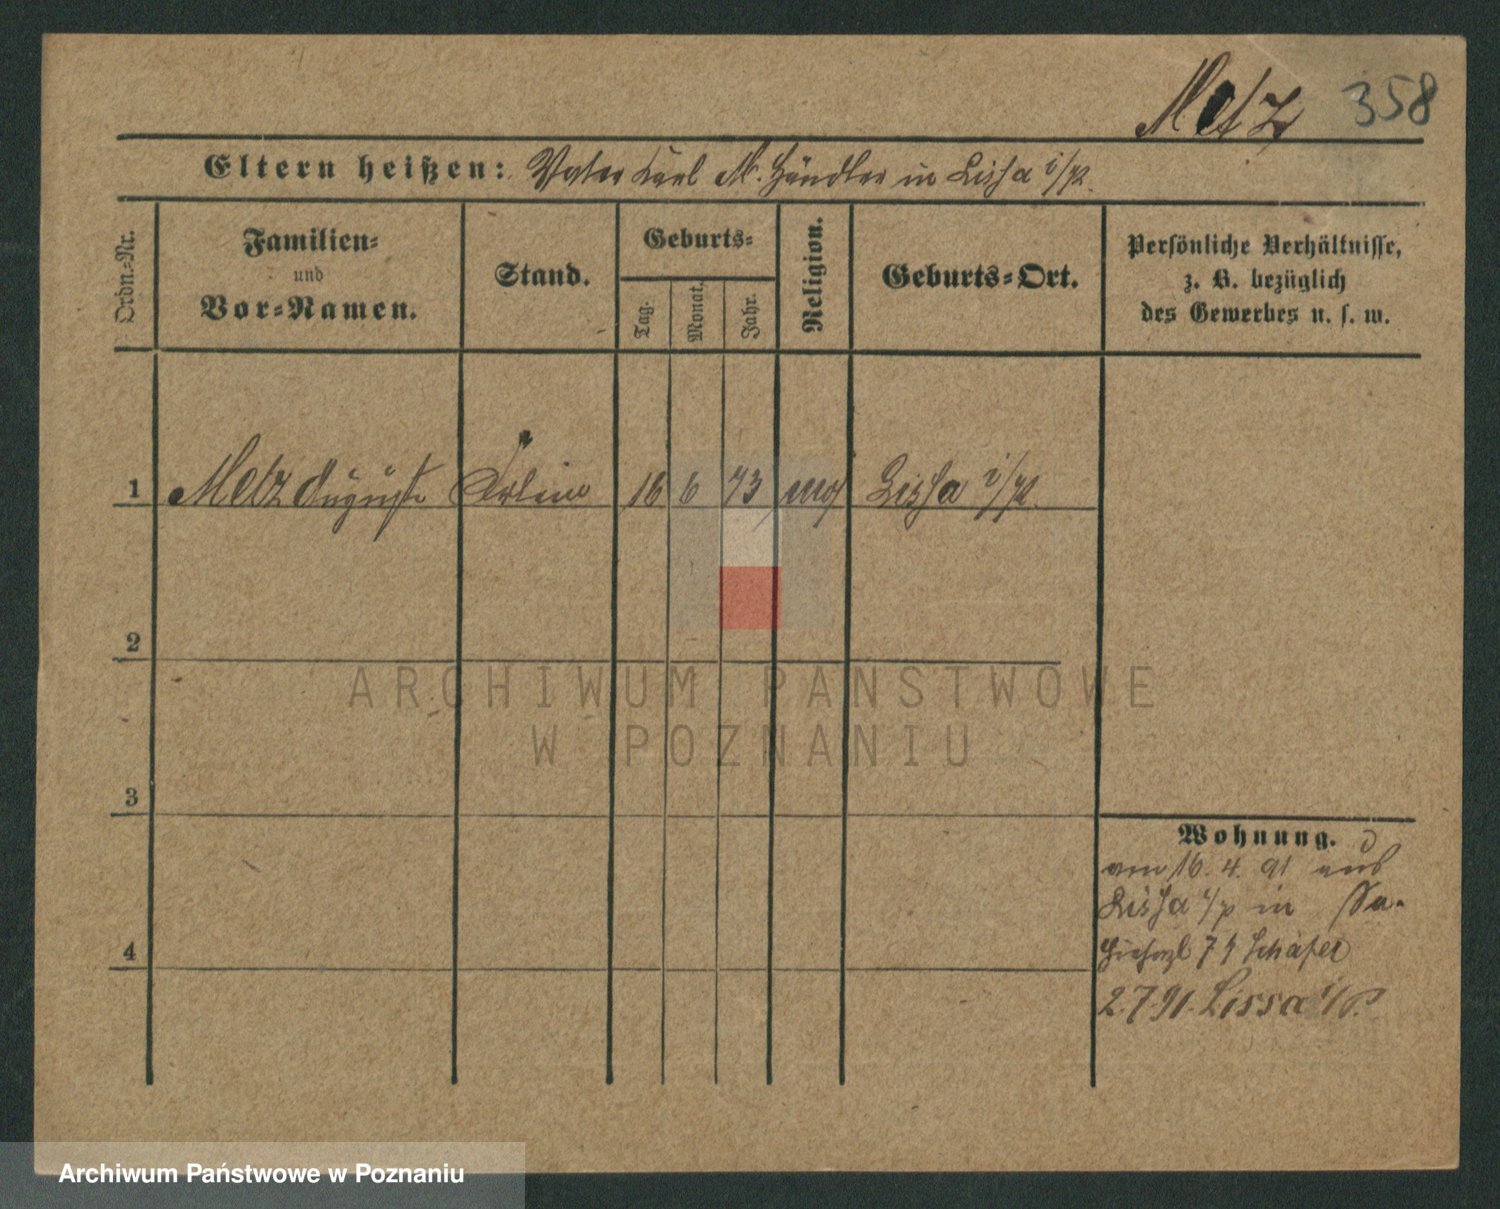 Metz 358
Eltern heißen: Vater Karl M. Händler in Lissa i/P.
Ordn.-Nr.
Familien-
und
Vor-Namen.
Stand.
Geburts-
Tag.
Monat.
Jahr.
Religion.
Geburts-Ort.
Persönliche Verhältnisse,
z. B. bezüglich
des Gewerbes u. s. w.
1 Metz Auguste 16 6 73 mos Lissa i/P.
2
ARCHIWUM PAŃSTWOWE
W POZNANIU
3
Wohnung.
vom 16. 4. 91 aus
Lissa i/P in
4
Schäfer
2.7.91. Lissa i/P.
Archiwum Państwowe w Poznaniu